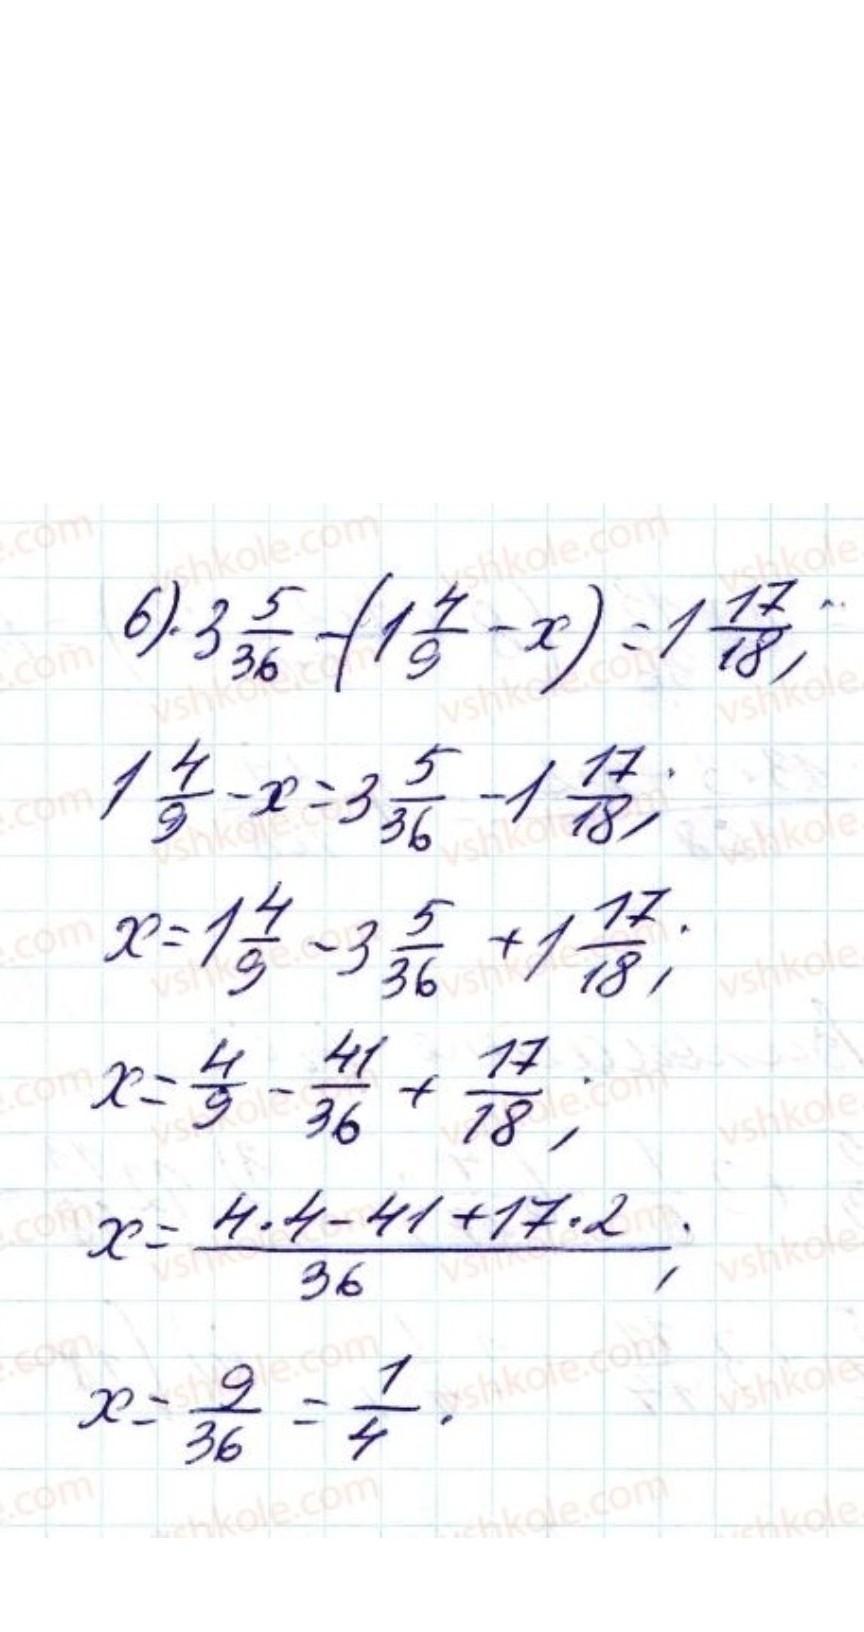 6) 3 5/36 - (1 4/9 - x) = 1 17/18;
1 4/9 - x = 3 5/36 - 1 17/18;
x = 1 4/9 - 3 5/36 + 1 17/18;
x = 4/9 - 41/36 + 17/18;
x = (4·4 - 41 + 17·2)/36;
x = 9/36 = 1/4.
vshkole.com